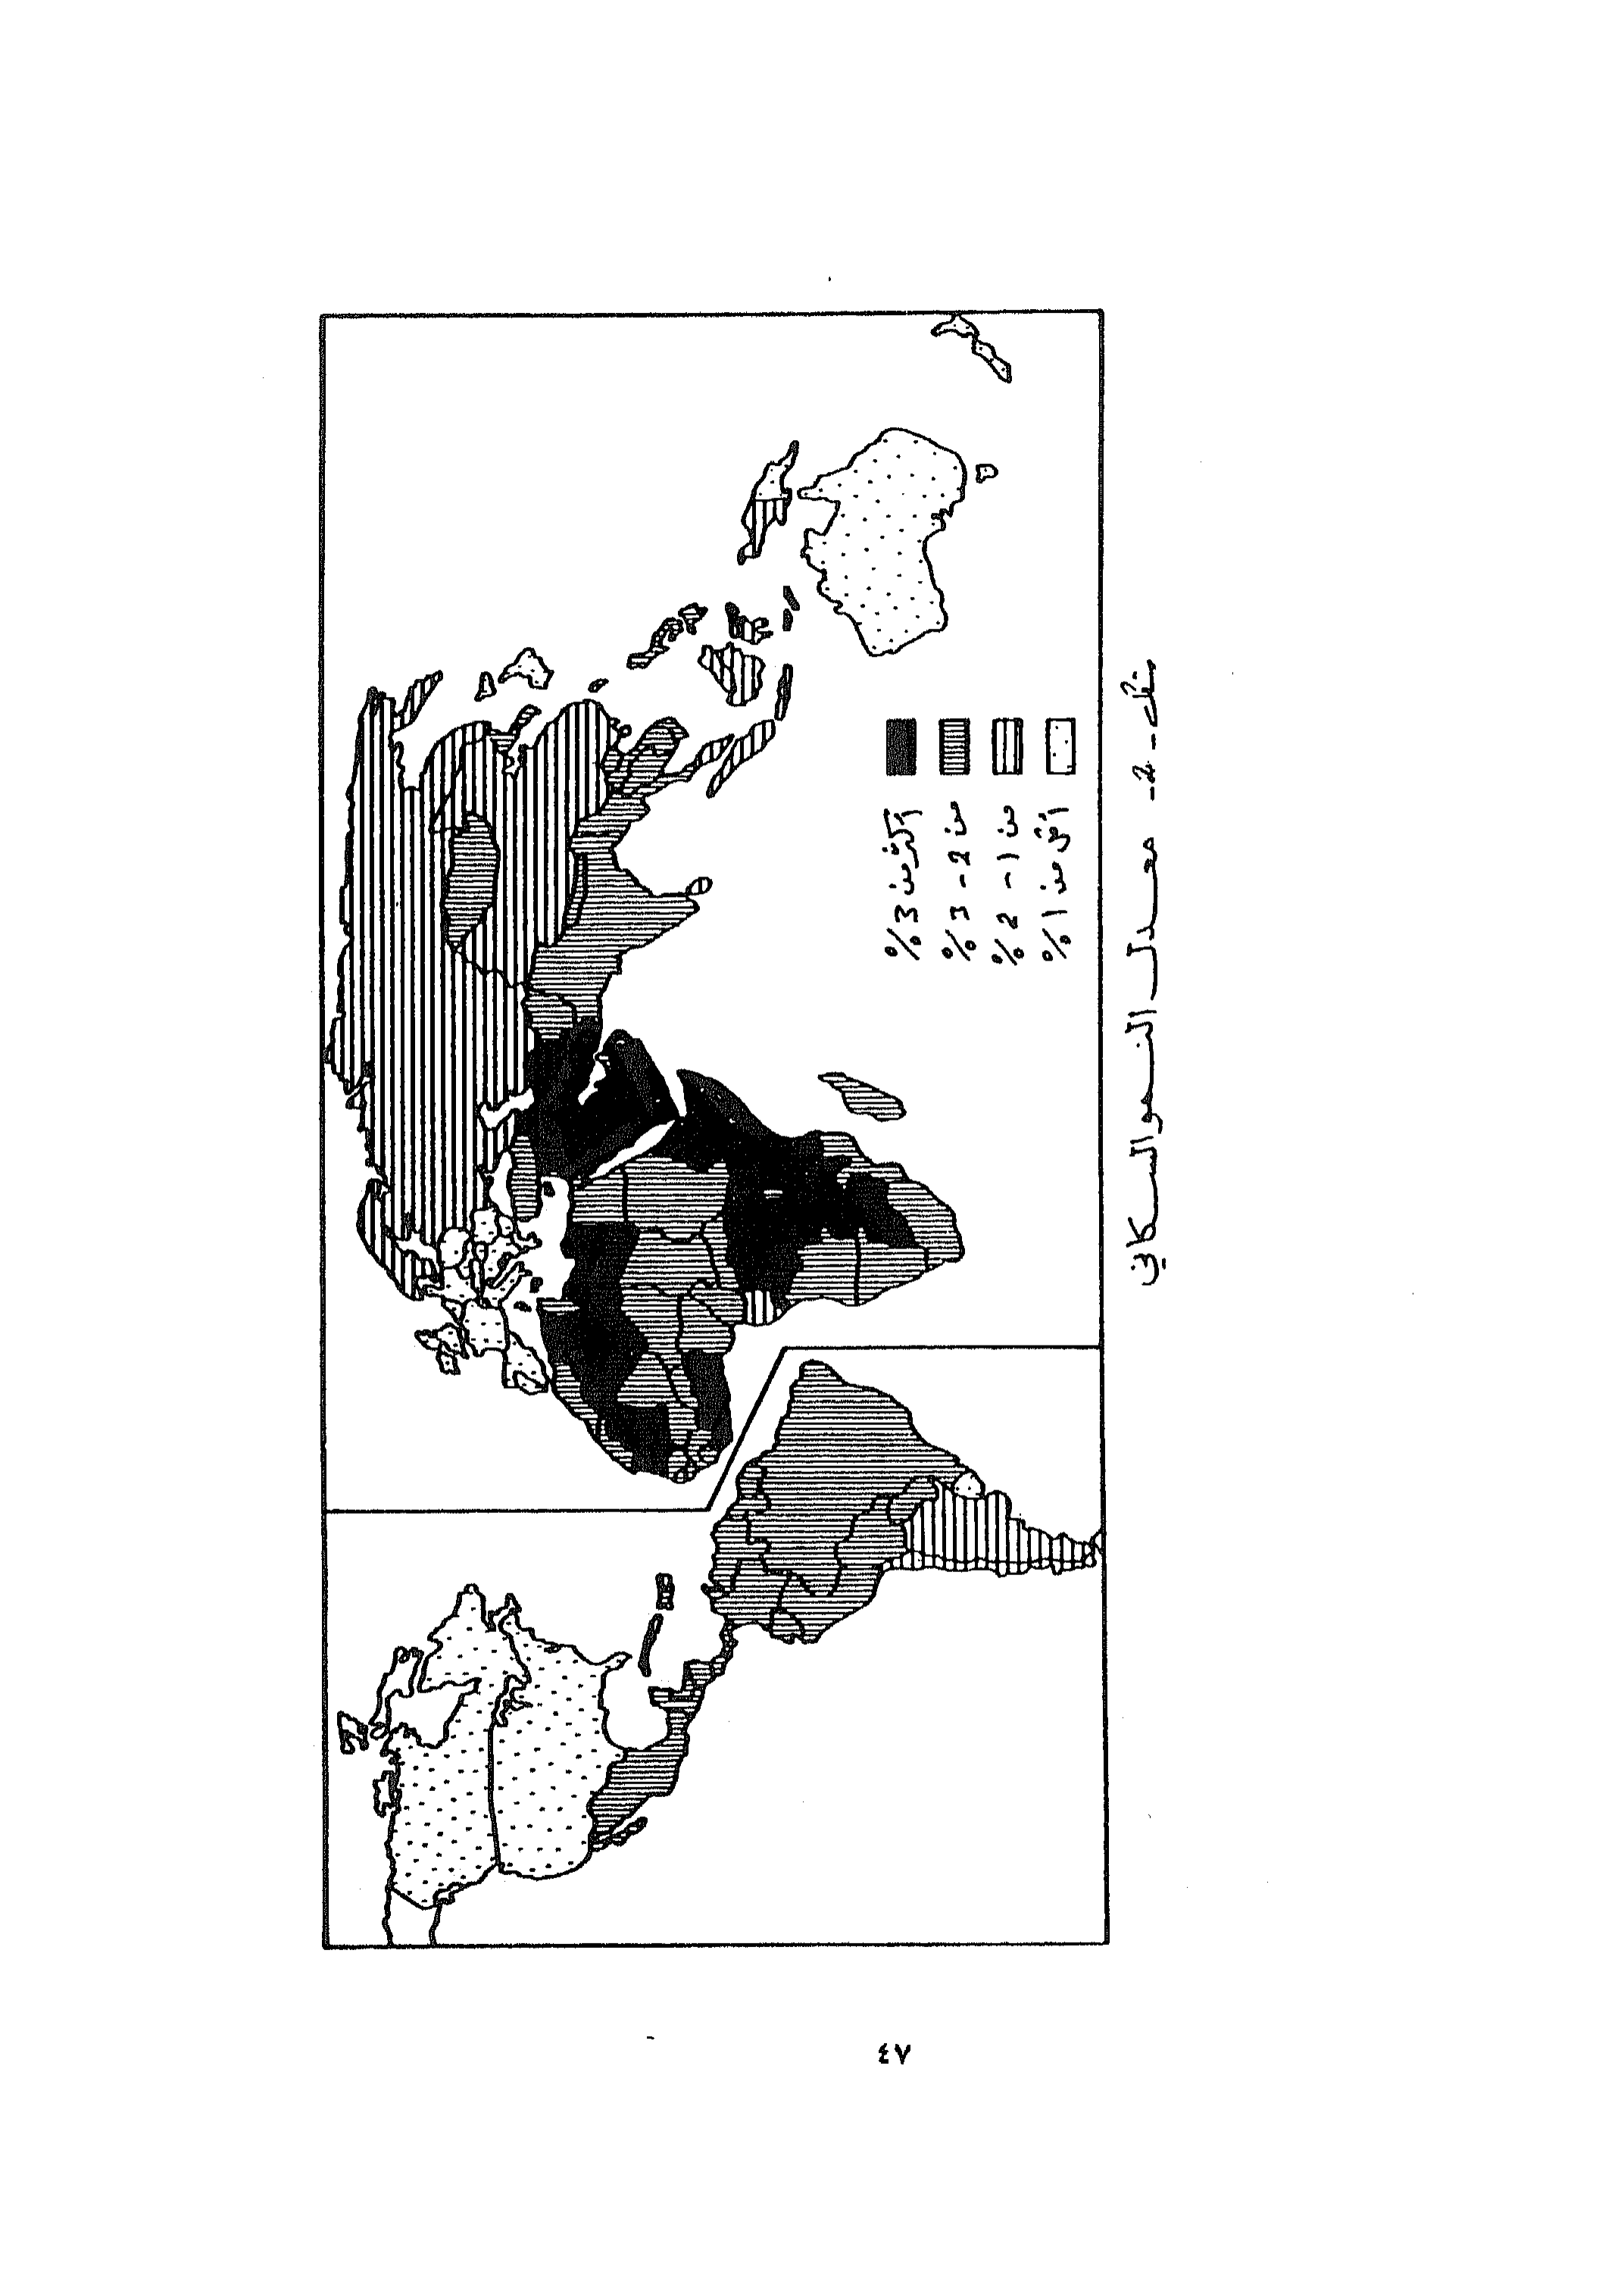 أكثر من 3 %
من 2 - 3 %
من 1 - 2 %
أقل من 1 %
شكل - 2 - معدل النمو السكاني
٤٧